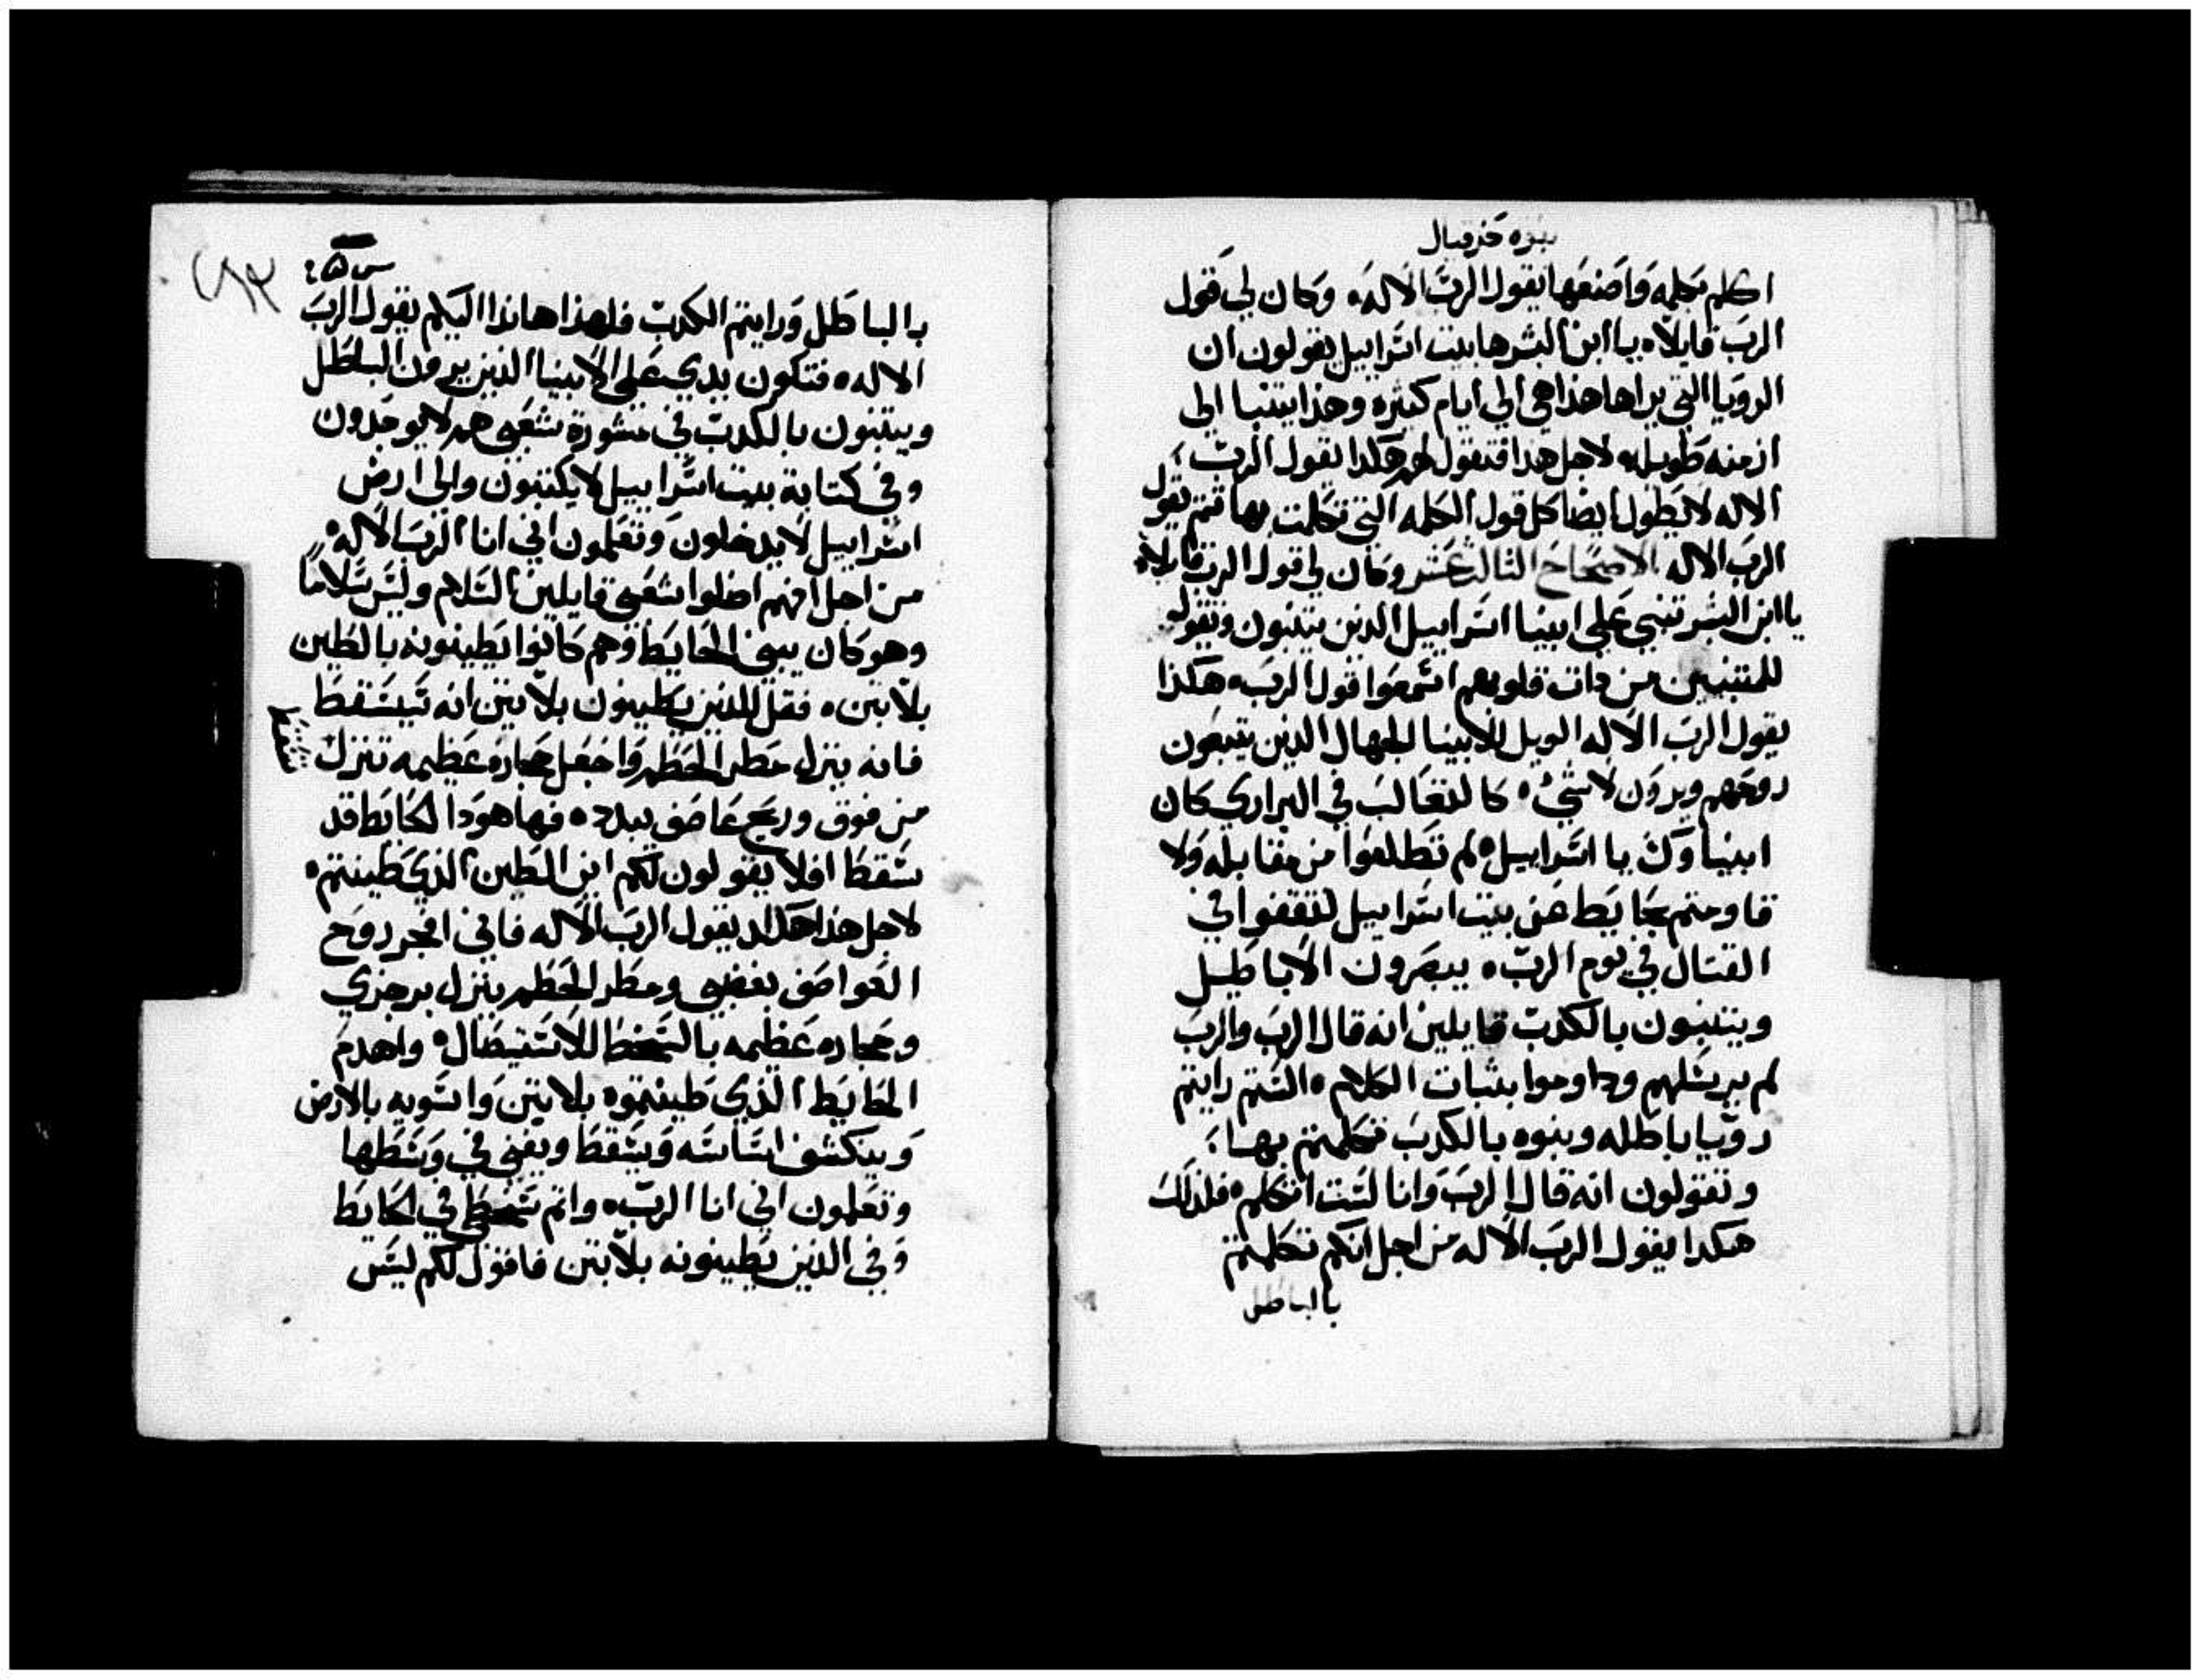 نبوه حزقيال
اكلم بكلمه واصنعها يقول الرب الاله ه وكان لي قول
الرب قايلاه يا ابن البشر ها بيت اسراييل يقولون ان
الرويا التي يراها هذا هي الي ايام كثيره وهذا يتنبا الي
ازمنه طويله ه لاجل هذا فتقول لهم هكدا يقول الرب
الاله لا يطول ايضا كل قول الكلمه التي تكلمت بها تتم يقول
الرب الاله الاصحاح التالت عشر وكان لي قول الرب قايلاه
يا ابن البشر تنبي علي انبيا اسراييل الدين يتنبون وتقول
للمتنبيين من دات قلوبهم اسمعوا قول الرب ه هكذا
يقول الرب الاله الويل للانبيا الجهال الدين يتبعون
روحهم ويرون لا شي ه كالتعالب في البراري كان
انبياوك يا اسراييل ه لم تطلعوا من مقابله ولا
قاومتم بحايط عن بيت اسراييل لتقفوا في
القتال في يوم الرب ه يبصرون الاباطيل
ويتنبون بالكدب قايلين انه قال الرب والرب
لم يرسلهم وداوموا بثبات الكلام ه الستم رايتم
رويا باطله ونبوه بالكدب تكلمتم بها
وتقولون انه قال الرب وانا لست اتكلم ه فلذلك
هكدا يقول الرب الاله من اجل انكم تكلمتم
بالباطل
بالباطل ورايتم الكدب فلهذا هانذا اليكم يقول الرب
الاله ه فتكون يدي علي الانبيا الذين يرون الباطل
ويتنبون بالكدب في مشورة شعبي هم لا يوجدون
وفي كتابة بيت اسراييل لا يكتبون والي ارض
اسراييل لا يدخلون وتعلمون اني انا الرب الاله ه
من اجل انهم اضلوا شعبي قايلين السلام وليس سلاما
وهو كان يبني الحايط وهم كانوا يطينونه بالطين
بلا تبن ه فقل للذين يطينون بلا تبن انه سيسقط
فانه ينزل مطر الحطم واجعل حجاره عظيمه تنزل
من فوق وريح عاصف يبدده فها هودا الحايط قد
سقط افلا يقولون لكم اين الطين الذي طينتم ه
لاجل هذا هكدا يقول الرب الاله فاني افجر روح
العواصف بغضبي ومطر الحطم ينزل برجزي
وحجاره عظيمه بالسخط للاستيصال ه واهدم
الحايط الذي طينتموه بلا تبن واسويه بالارض
وينكشف اساسه ويسقط ويفني في وسطها
وتعلمون اني انا الرب ه واتم سخطي في الحايط
وفي الذين يطينونه بلا تبن فاقول لكم ليس